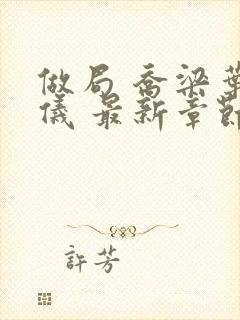 做局 喬梁葉
儀 最新章節
許芳